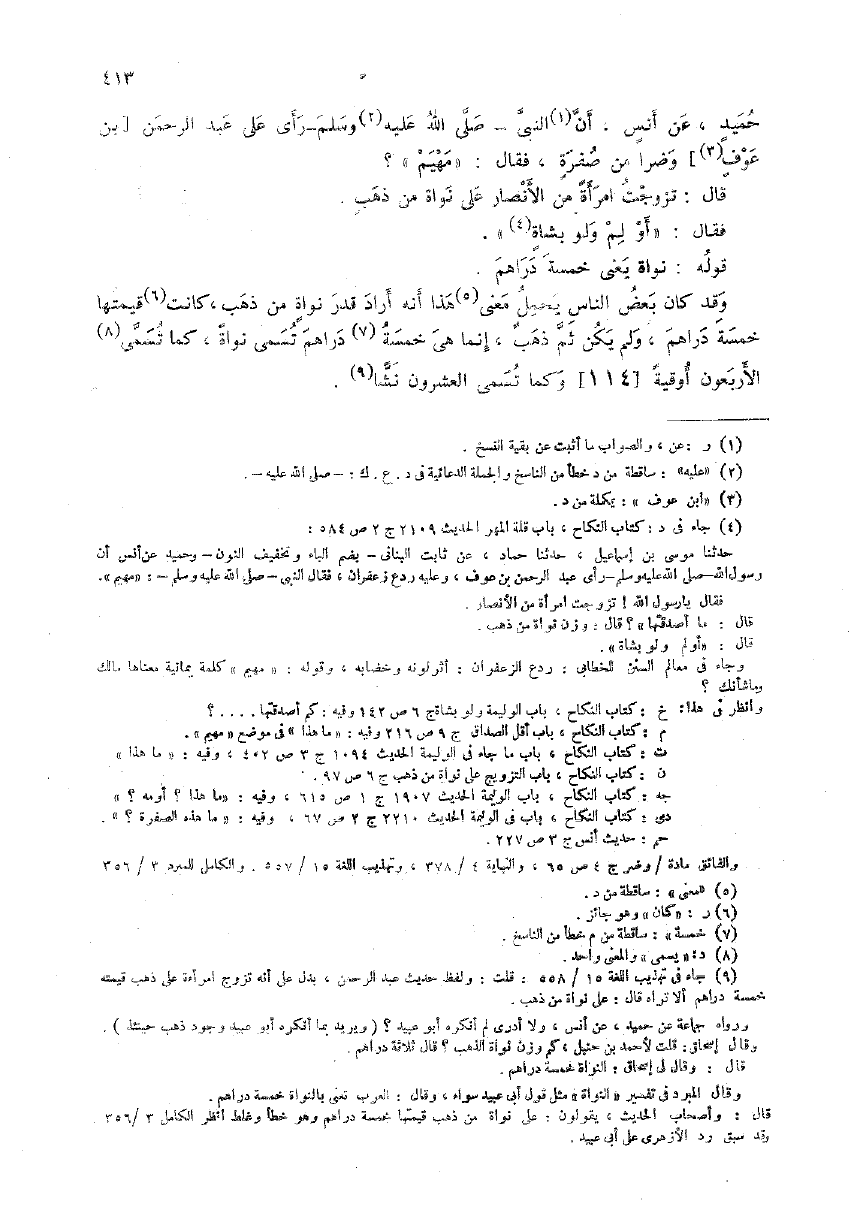 ٤١٣
حُمَيدٍ ، عَن أَنسٍ ، أَنَّ(١) النبيَّ – صَلَّى اللهُ عَليه(٢) وَسَلمَ – رَأَى عَلى عَبد الرحمَن [ بن
عَوْفٍ(٣) ] وَضَراً مِن صُفرَةٍ ، فَقال : «مَهْيَمْ » ؟
قال : تزوجْتُ امرَأَةً منَ الأَنْصار عَلى نَواة من ذهَبٍ .
فقال : «أَوْ لِمْ وَلو بشاةٍ(٤) » .
قولُه : نواة يَعْنى خمسةَ دَرَاهمَ .
وَقد كان بَعضُ الناس يَحملُ مَعْنى(٥) هَذا أنه أرادَ قدرَ نواةٍ من ذهَب ، كانت(٦) قيمتها
خمسَةَ دَراهمَ ، وَلم يَكُن ثَمَّ ذهَبٌ ، إنما هىَ خمسَةُ(٧) دَراهمَ تُسَمى نواةً ، كما تُسَمَّى(٨)
الأَربَعون أُوقيةً [ ١١٤ ] وَكما تُسَمى العشرون نَشًّا(٩) .
(١) ر : عن ، والصواب ما أثبت عن بقية النسخ .
(٢) «عليه» : ساقطة من د خطأ من الناسخ والجملة الدعائية فى د . ع . ك : – صلى الله عليه – .
(٣) «ابن عوف » : تكملة من د .
(٤) جاء فى د : كتاب النكاح ، باب قلة المهر الحديث ٢١٠٩ ج ٢ ص ٥٨٤ :
حدثنا موسى بن إسماعيل ، حدثنا حماد ، عن ثابت البنانى – بضم الباء وتخفيف النون – وحميد عن أنس أن
رسول الله – صلى الله عليه وسلم – رأى عبد الرحمن بن عوف ، وعليه ردع زعفران ، فقال النبى – صلى الله عليه وسلم – : «مهيم » .
فقال يارسول الله ! تزوجت امرأة من الأنصار .
قال : ما أصدقتها » ؟ قال : وزن نواة من ذهب .
قال : «أولم ولو بشاة » .
وجاء فى معالم السنن للخطابى : ردع الزعفران : أثر لونه وخضابه ، وقوله : « مهيم » كلمة يمانية معناها مالك
وماشأنك ؟
وانظر فى هذا : خ : كتاب النكاح ، باب الوليمة ولو بشاة ج ٦ ص ١٤٢ وفيه : كم أصدقتها . . . . ؟
م : كتاب النكاح ، باب أقل الصداق ج ٩ ص ٢١٦ وفيه : « ما هذا » فى موضع « مهيم » .
ت : كتاب النكاح ، باب ما جاء فى الوليمة الحديث ١٠٩٤ ج ٣ ص ٤٠٢ ، وفيه : « ما هذا »
ن : كتاب النكاح ، باب التزويج على نواة من ذهب ج ٦ ص ٩٧ .
جه : كتاب النكاح ، باب الوليمة الحديث ١٩٠٧ ج ١ ص ٦١٥ ، وفيه : «ما هذا ؟ أومه ؟ »
دى : كتاب النكاح ، باب فى الوليمة الحديث ٢٢١٠ ج ٢ ص ٦٧ ، وفيه : « ما هذه الصفرة ؟ » .
حم : حديث أنس ج ٣ ص ٢٢٧ .
والفائق مادة / وضر ج ٤ ص ٦٥ ، والنهاية ٤ / ٣٧٨ ، وتهذيب اللغة ١٥ / ٥٥٧ . والكامل للمبرد ٣ / ٣٥٦
(٥) «معنى » : ساقطة من د .
(٦) ر : «كان » وهو جائز .
(٧) خمسة » : ساقطة من م خطأ من الناسخ .
(٨) د : « يسمى » والمعنى واحد .
(٩) جاء فى تهذيب اللغة ١٥ / ٥٥٨ : قلت : ولفظ حديث عبد الرحمن ، يدل على أنه تزوج امرأة على ذهب قيمته
خمسة دراهم ألا تراه قال : على نواة من ذهب .
ورواه جماعة عن حميد ، عن أنس ، ولا أدرى لم أنكره أبو عبيد ؟ ( ويريد بما أنكره أبو عبيد وجود ذهب حينئذ ) .
وقال إسحاق : قلت لأحمد بن حنبل ، كم وزن نواة الذهب ؟ قال ثلاثة دراهم .
قال : وقال لى إسحاق : النواة خمسة دراهم .
وقال المبرد فى تفسير « النواة » مثل قول أبى عبيد سواء ، وقال : العرب تعنى بالنواة خمسة دراهم .
قال : وأصحاب الحديث ، يقولون : على نواة من ذهب قيمتها خمسة دراهم وهو خطأ وغلط انظر الكامل ٣ / ٣٥٦ .
وقد سبق رد الأزهرى على أبى عبيد .